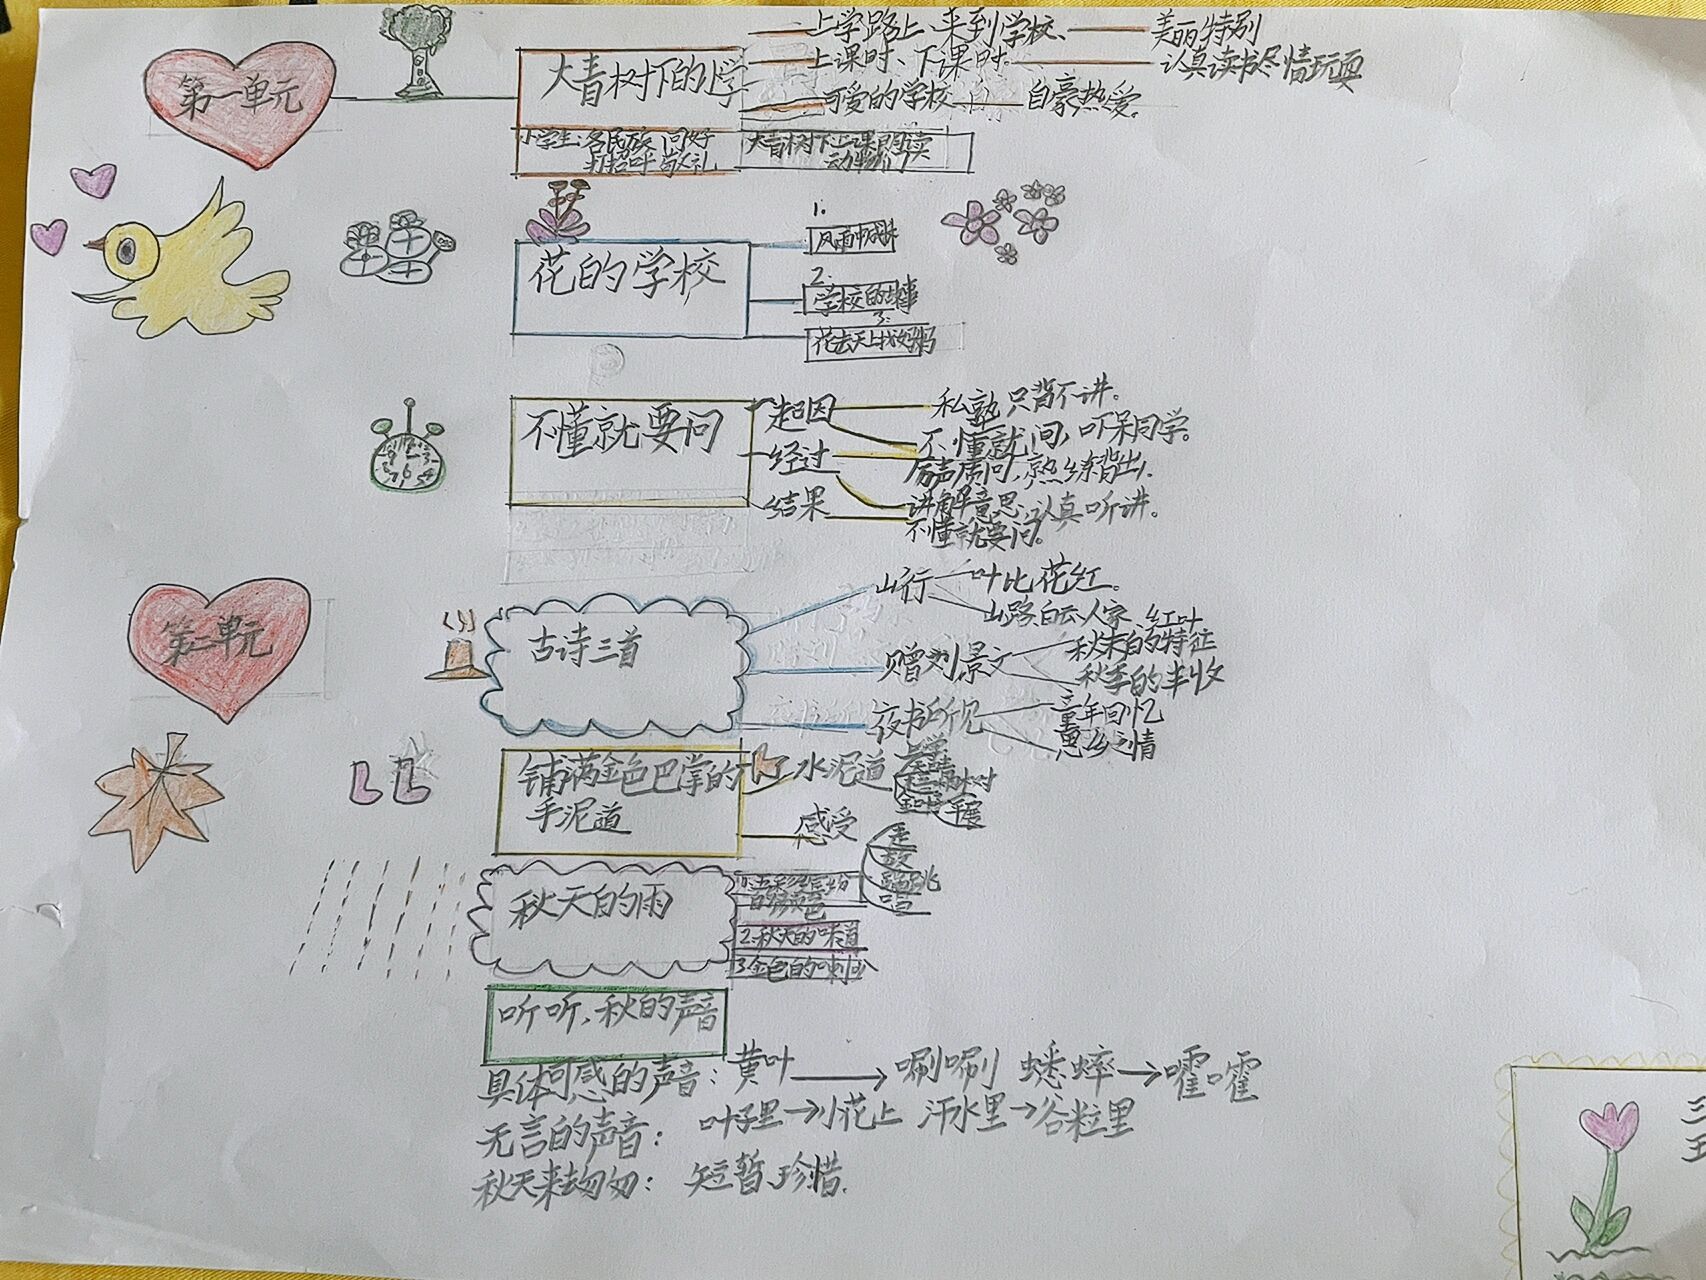 第一单元
大青树下的小学
上学路上、来到学校、 美丽特别
上课时、下课时 认真读书尽情玩耍
可爱的学校 自豪热爱。
小学生:各民族 问好
打招呼 敬礼
大青树下上课朗读
动物们
花的学校
1.
2.
学校的故事
3.
花去天上找妈妈
不懂就要问
起因 私塾只背不讲。
经过 不懂就问,吓呆同学。
厉声质问,熟练背出。
结果 讲解意思,认真听讲。
不懂就要问。
第二单元
古诗三首
山行 叶比花红。
山路白云人家、红叶
赠刘景文 秋末的特征
秋季的丰收
夜书所见 童年回忆
思乡之情
铺满金色巴掌的
手泥道
水泥道
感受
秋天的雨
2.秋天的味道
3金色的喇叭
听听,秋的声音
具体可感的声音:黄叶→唰唰 蟋蟀→嚯嚯
无言的声音: 叶子里→小花上 汗水里→谷粒里
秋天来去匆匆: 短暂珍惜.